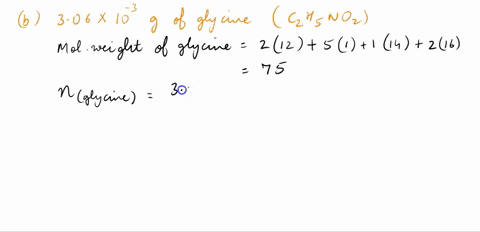 (b) 3.06 × 10⁻³ g of glycine (C₂H₅NO₂)
Mol. weight of glycine = 2(12) + 5(1) + 1(14) + 2(16)
= 75
n(glycine) = 30